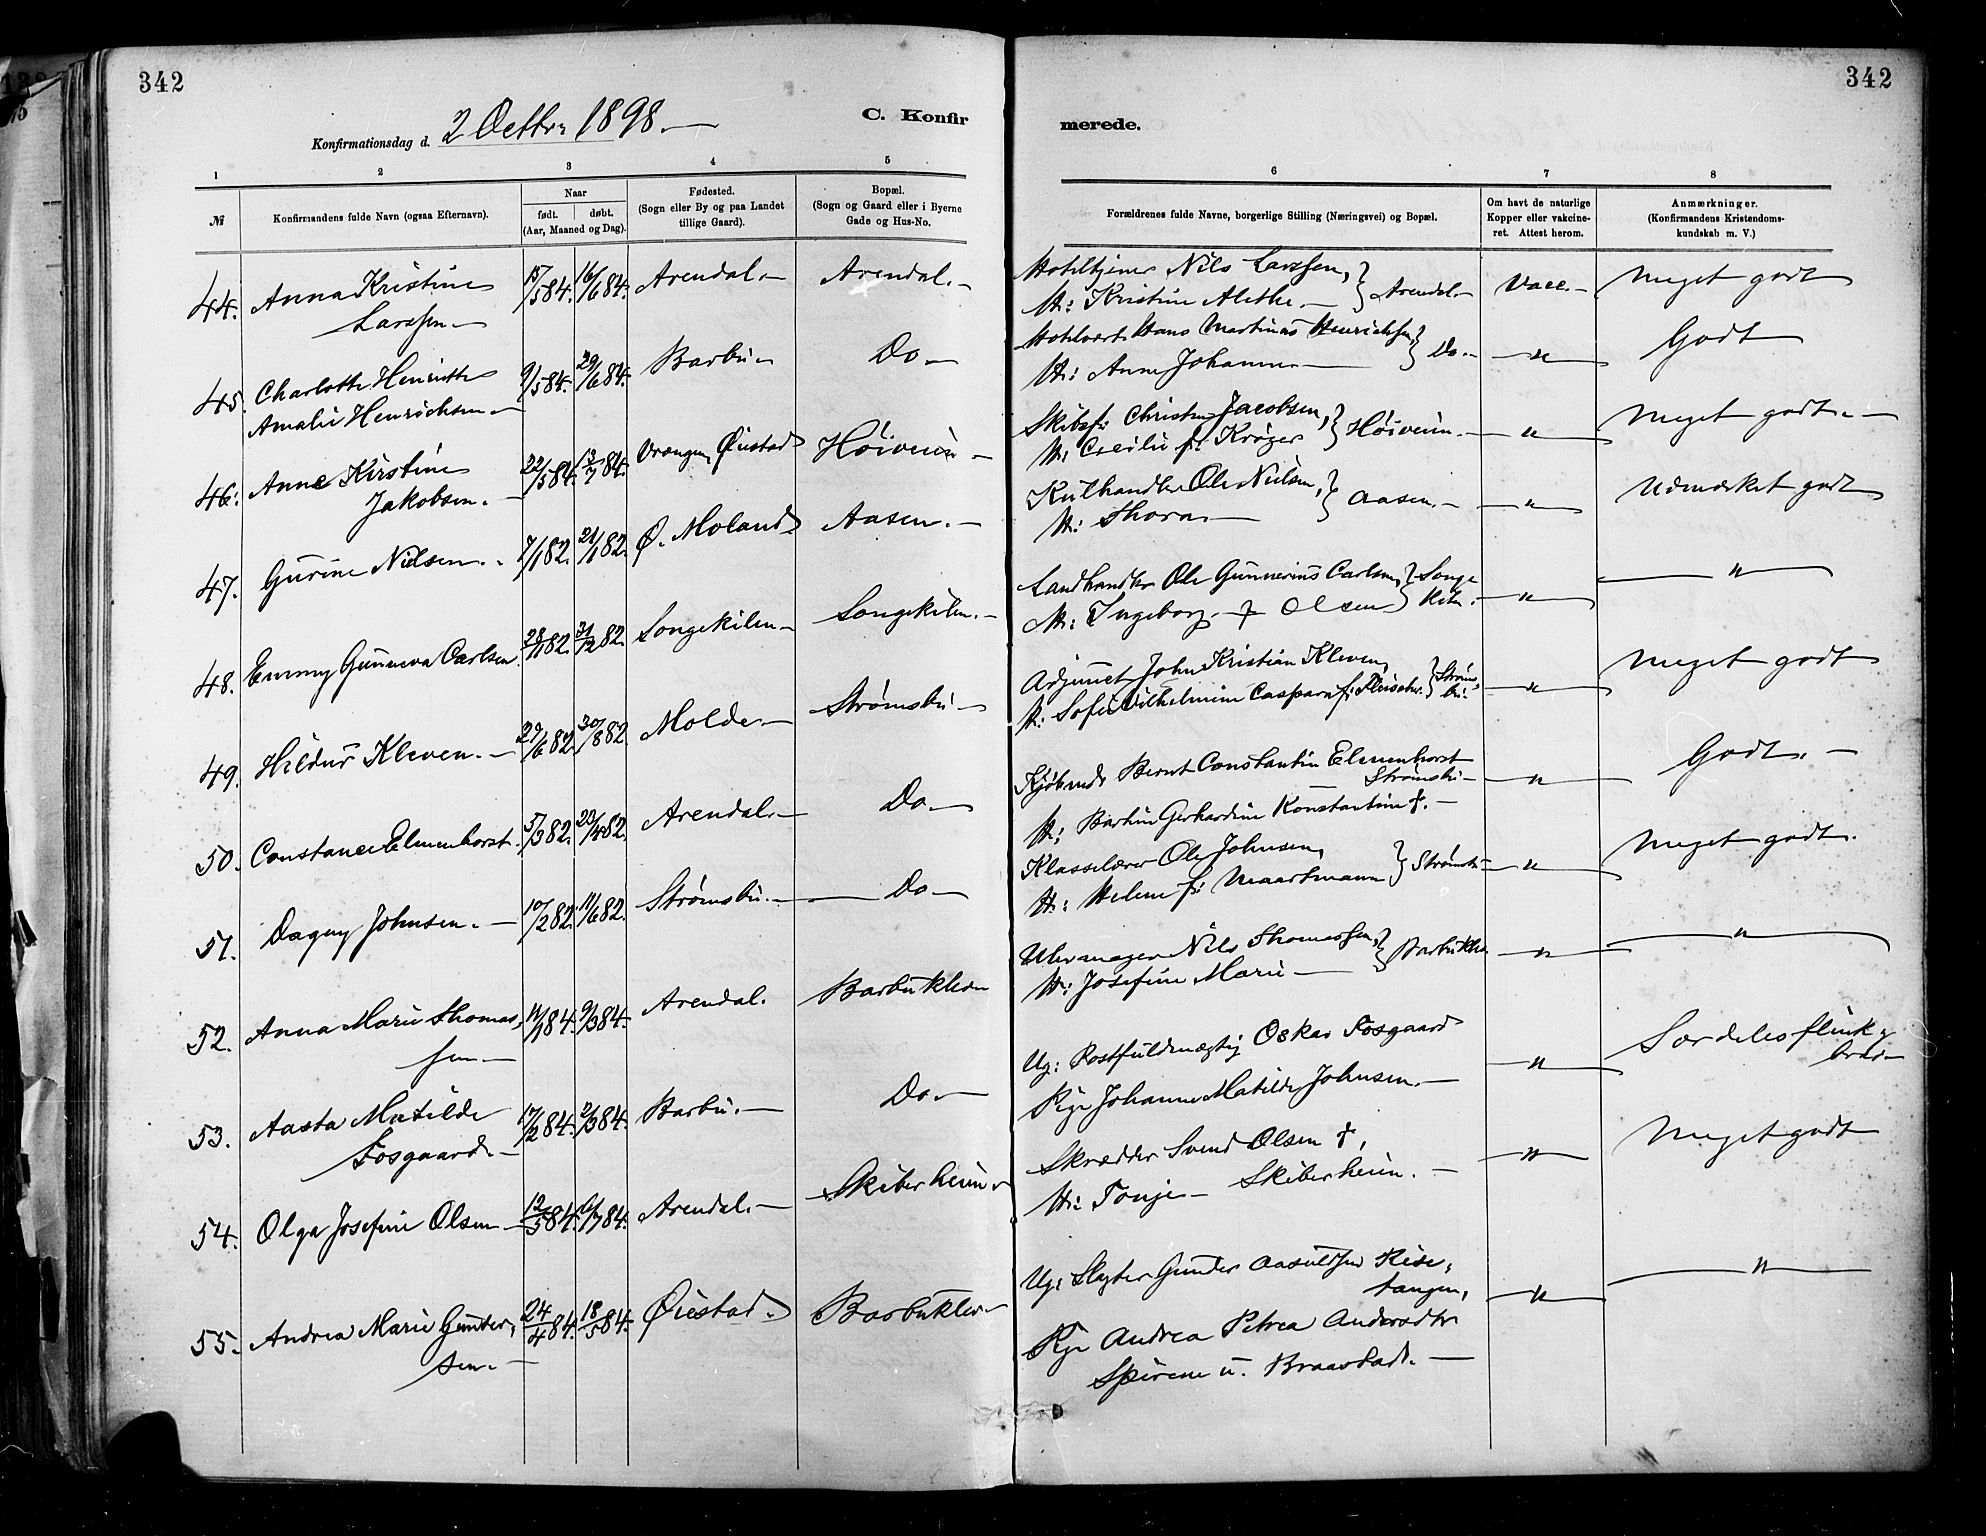 342
342
Konfirmationsdag d. 2 Octbr. 1898.
C. Konfir
merede.
1 2 3 4 5
6 7 8
№
Konfirmandens fulde Navn (ogsaa Efternavn).
Naar
født. døbt.
(Aar, Maaned og Dag).
Fødested.
(Sogn eller By og paa Landet
tillige Gaard).
Bopæl.
(Sogn og Gaard eller i Byerne
Gade og Hus-No.
Forældrenes fulde Navne, borgerlige Stilling (Næringsvei) og Bopæl.
Om havt de naturlige
Kopper eller vakcine-
ret. Attest herom.
Anmærkninger.
(Konfirmandens Kristendoms-
kundskab m. V.)
44. Anna Kristine 15/5 84. 16/6 84. Arendal. Arendal.
Larssen
Nils Larssen,
H: Kristine Alethe. } Arendal. Vacc. Meget godt
45. Charlotte Henriette 9/5 84. 29/6 84. Barbu Do
Amalie Henrichsen.
Hotelvert Hans Martinus Henrichsen,
H: Anne Johanne } Do. " Godt
46. Anne Kirstine 22/5 84. 13/7 84. Vrangen, Øiestad Høiveien
Jakobsen.
Skibsf: Christen Jacobsen,
H: Cecilie f: Krøger } Høiveien. " Meget godt.
47. Gurine Nielsen. 7/1 82. 21/1 82. Ø. Moland Aasen.
Kulhandler Ole Nielsen,
H: Thora } Aasen. " Udmærket godt
48. Emmy Gunneva Carlsen 28/1 82. 31/12 82. Songekilen Songekilen.
Landhandler Ole Gunnerius Carlsen, } Songe
H: Ingeborg f Olsen kiln. " "
49. Hildur Kleven. 29/6 82 30/8 82 Molde. Strømsbu
Adjunct John Kristian Kleven,
H: Sofie Vilhelmine Caspara f: Fleischer. } Strøms
bu. " Meget godt
50. Constance Elmenhorst. 5/3 82. 23/4 82. Arendal. Do
Kjøbmd. Bernt Constantin Elmenhorst
Strømsbu
H: Barbu Gerhardine Konstantine †. " Godt.
51. Dagny Johnsen. 10/2 82. 11/6 82. Strømsbu. Do
Klasselærer Ole Johnsen,
H: Helene f: Maartmann } Strømsb. " Meget godt.
52. Anna Marie Thomas, 11/1 84. 9/3 84. Arendal. Barbuklev
sen
Uhrmager Nils Thomassen,
H: Josefine Marie } Barbuklev. " "
53. Aasta Matilde 17/2 84. 2/3 84. Barbu. Do
Fosgaard.
Ug: Postfuldmægtig Oskar Fosgaard
Pige Johanne Matilde Johnsen. " Særdeles flink &
brav
54. Olga Josefine Olsen 12/5 84. 6/7 84. Arendal. Skiberheim
Skrædder Svend Olsen †,
H: Tonje Skiberheim. " Meget godt
55. Andrea Marie Gunder, 24/4 84. 18/5 84. Øiestad. Barbuklev
sen.
Ug: Slagter Gunder Aasuldsen Rise,
tangen,
Pige Andrea Petrea Andersdtr
Spirene u. Braastad. " "